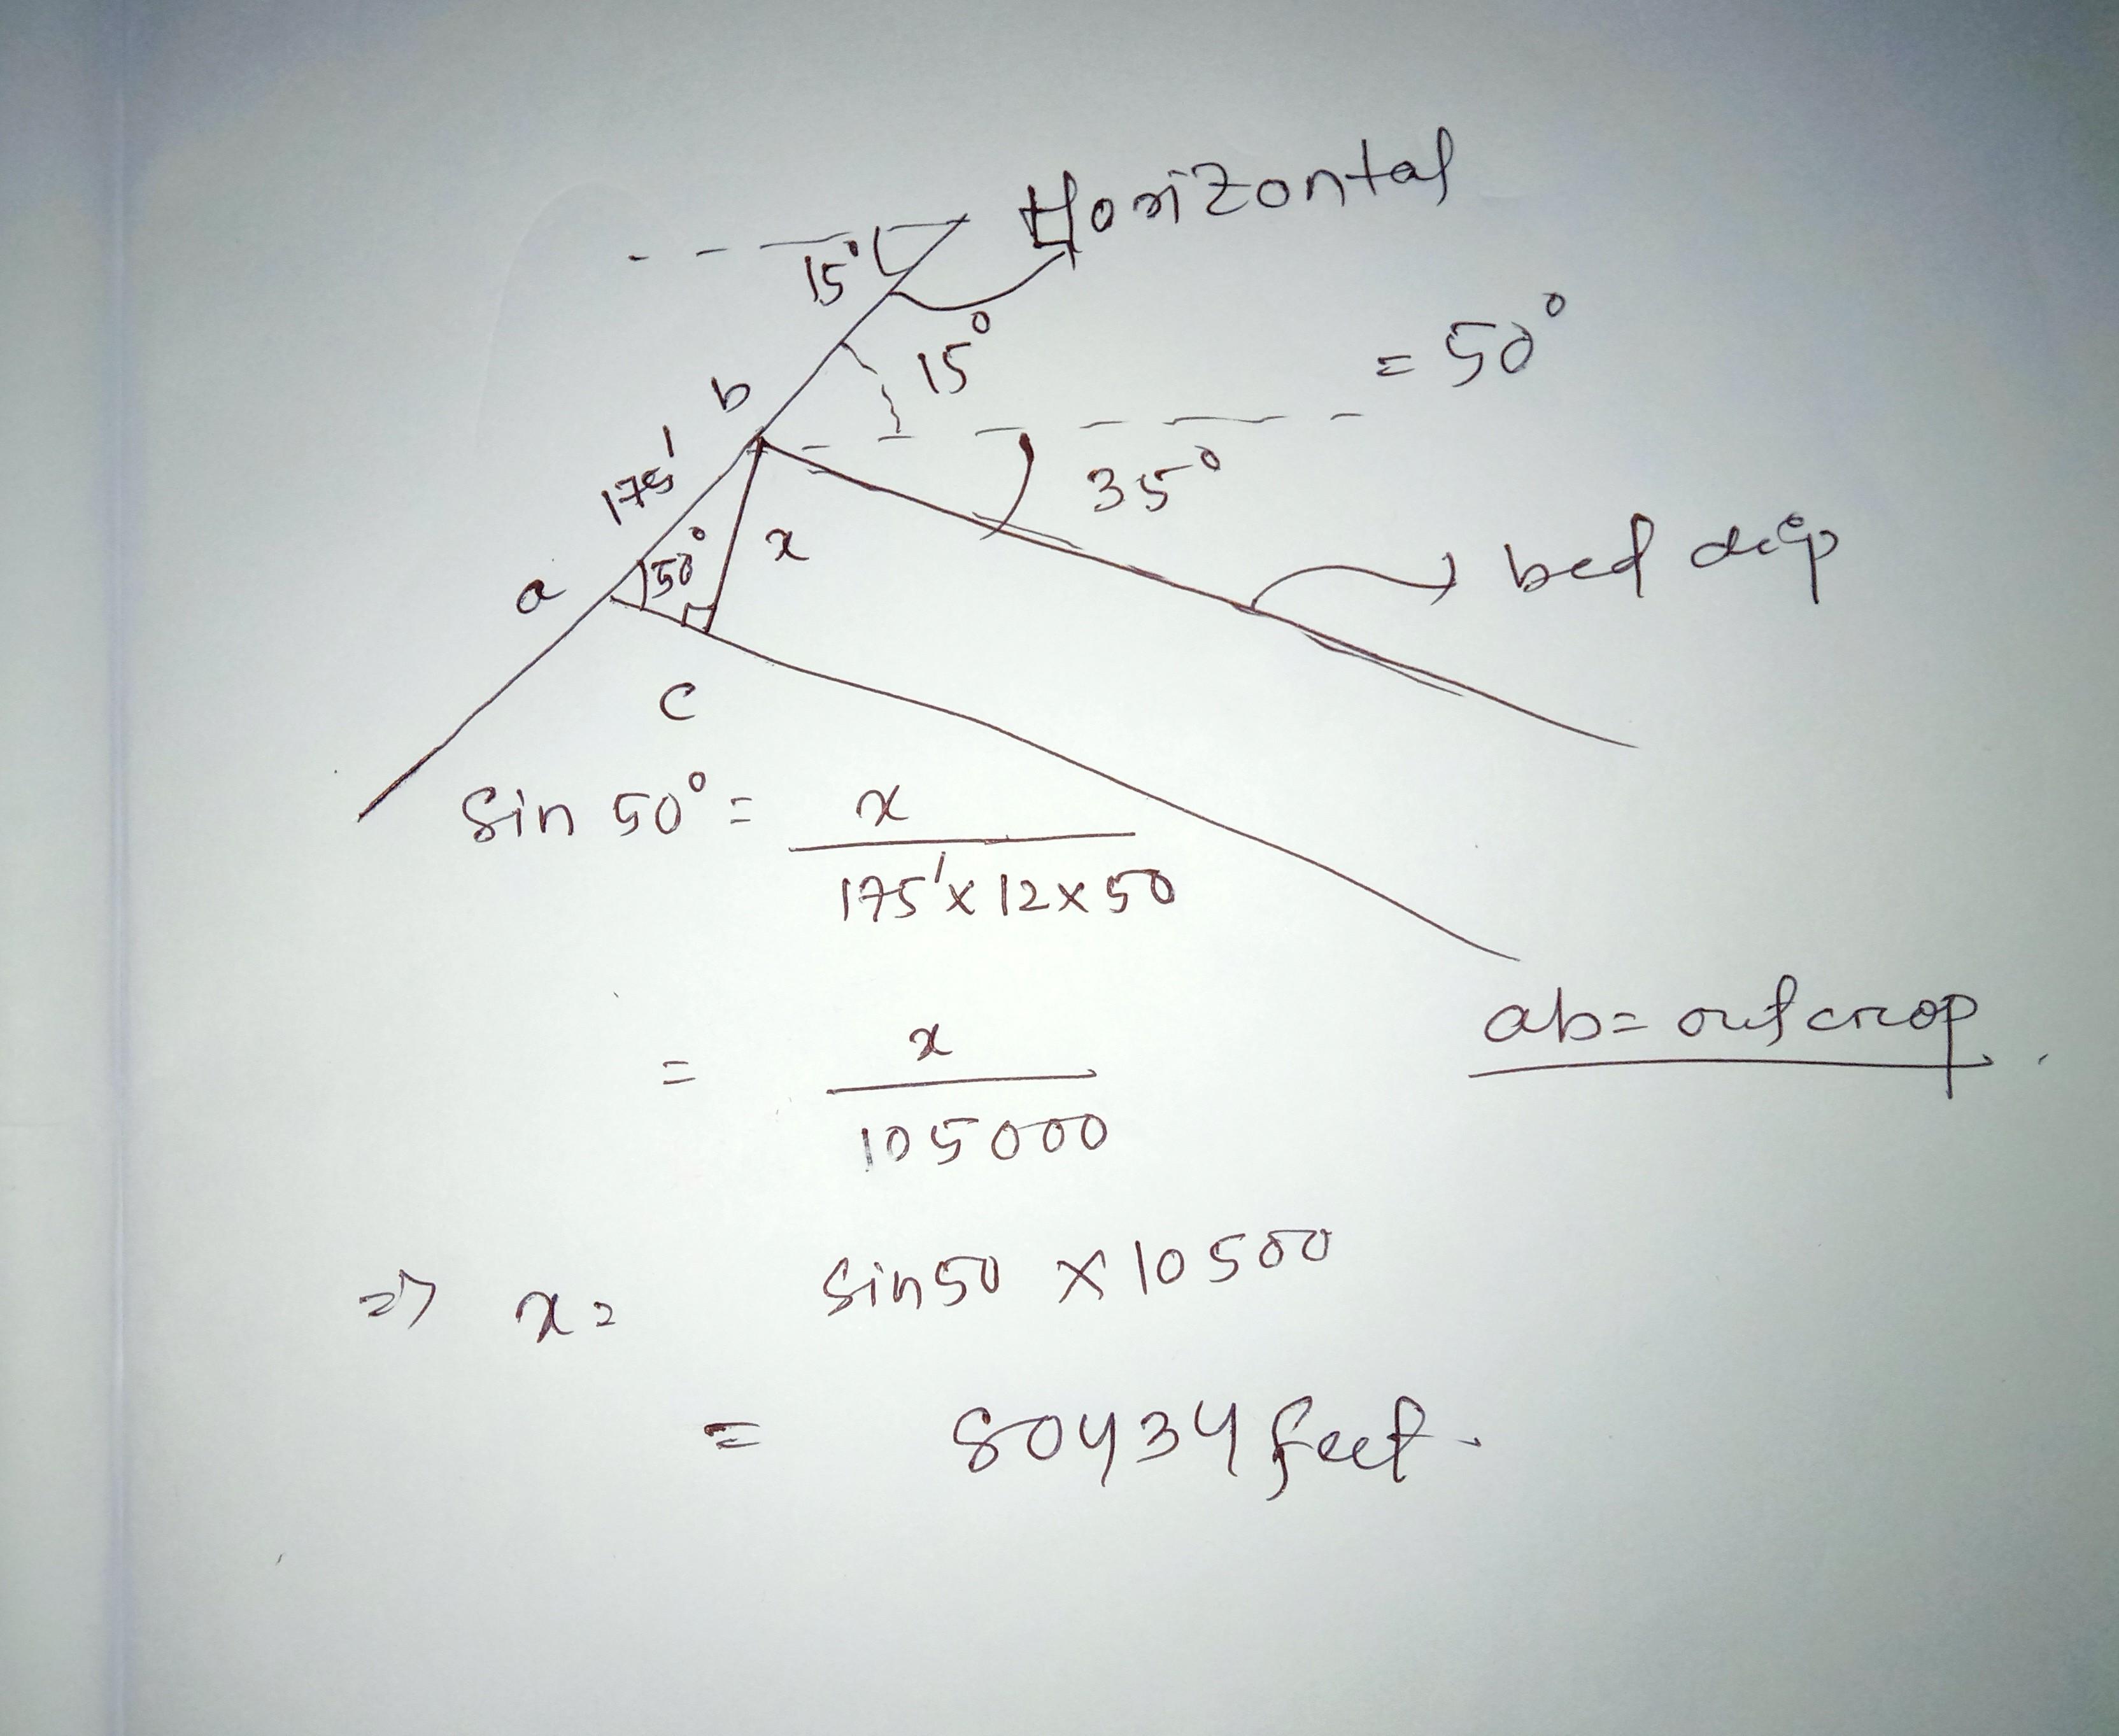 Horizontal
15°
15°
= 50°
b
175'
35°
50°
x
a
bed dip
c
Sin 50° = x
175' x 12 x 50
ab = outcrop.
= x
105000
=> x = Sin 50 x 10500
= 80434 feet.